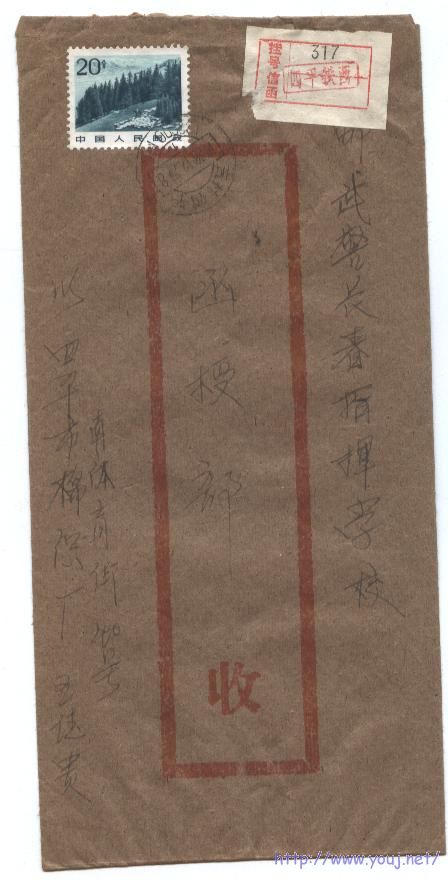 20分
中国人民邮政
挂号信函
317
四平铁西
邮武警长春指挥学校
函授部
收
四平市棉织厂
南体育街
http://www.youj.net/